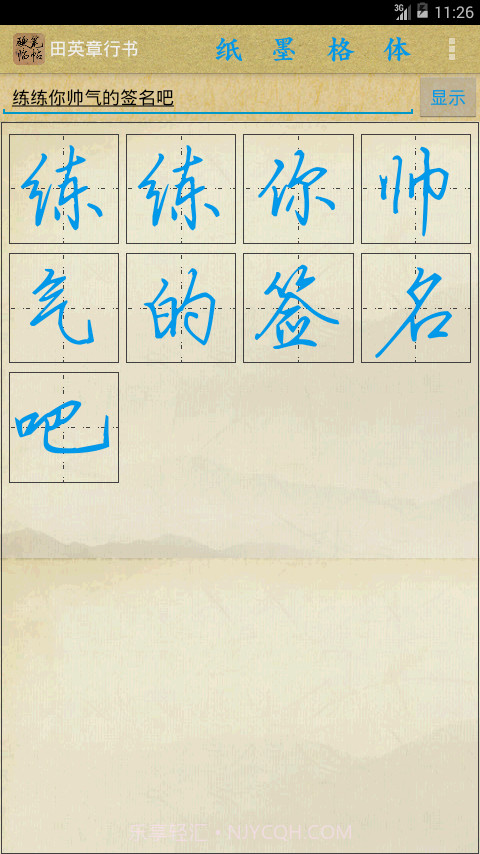 3G 11:26
硬笔临帖 田英章行书 纸 墨 格 体
练练你帅气的签名吧 显示
练 练 你 帅
气 的 签 名
吧
乐享轻汇·NJYCQH.COM